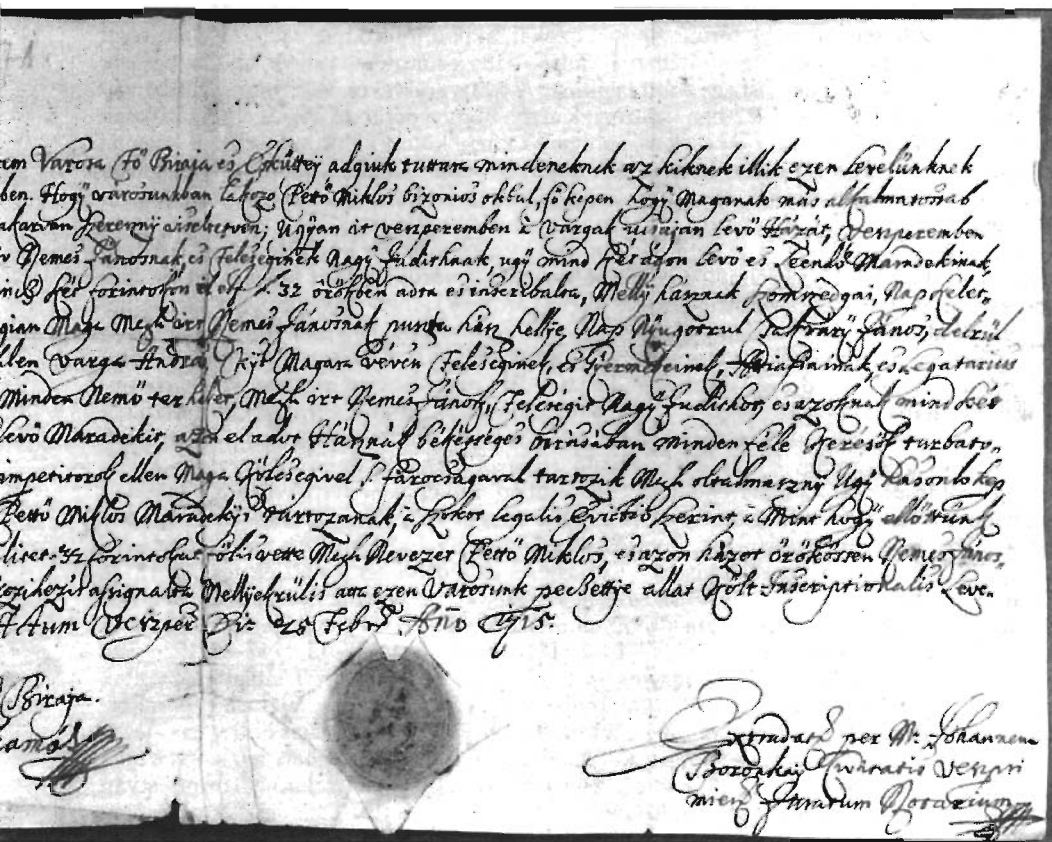 Varosa Fő Biraja es Esküttej adgiuk tuttara mindeneknek az kiknek illik ezen Levelünknek
ben. Hogy varosunkban Lakozo Pettő Miklos bizonios okbul, fő kepen hogy Maganak más alkalmatossab
akarvan szerezny Ugyan it veszperemben a vargak uczajan levő Házát, Veszperemben
Nemes Jánosnak, es Feleseginek Nagy Judithnak, ugy mind két ágon levő es Leendő Maradekinak,
két forintokon 32 örökben adta es inscribalta, Melly háznak szomszedgai, Napkelet„
Maga Megh irt Nemes Jánosnak puszta ház hellye, Nap Nyugotrul János, delrül
ellen Varga András Magara véven Feleseginek, es Gyermekeinek, Attiafiainak es Legatarius
Minden Nemő terheket, Megh irt Nemes János, Feleségit Nagy Judithot, es azoknak mind két
levő Maradekit, azon el adot Háznak békességes birásában minden féle Keresők turbato„
impetitorok ellen Maga költsegivel s fáratságaval tartozik Megh oltalmazny Ugy hasonlokep
Pettő Miklos Maradekjs tartozanak, a szokot legalis Evictio szerint, a Mint hogy előttünk
32 forintokat fölis vette Megh Nevezet Pettő Miklos, es azon házot örökössen Nemes János„
kezihezis assignalta Mellyekrülis atta ezen Városunk pecsettye allat költ Inscriptionalis Leve„
Veszper Die 25 Febr. Año 1715.
Biraja.
Extradatæ per M: Johannem
Civitatis Veszpri
mien: Juratum Notarium